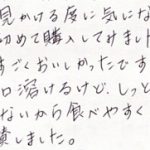 見かける度に気にな
初めて購入してみまし
すごくおいしかったです
口溶けるけど、しっと
ないから食べやすく
しました。